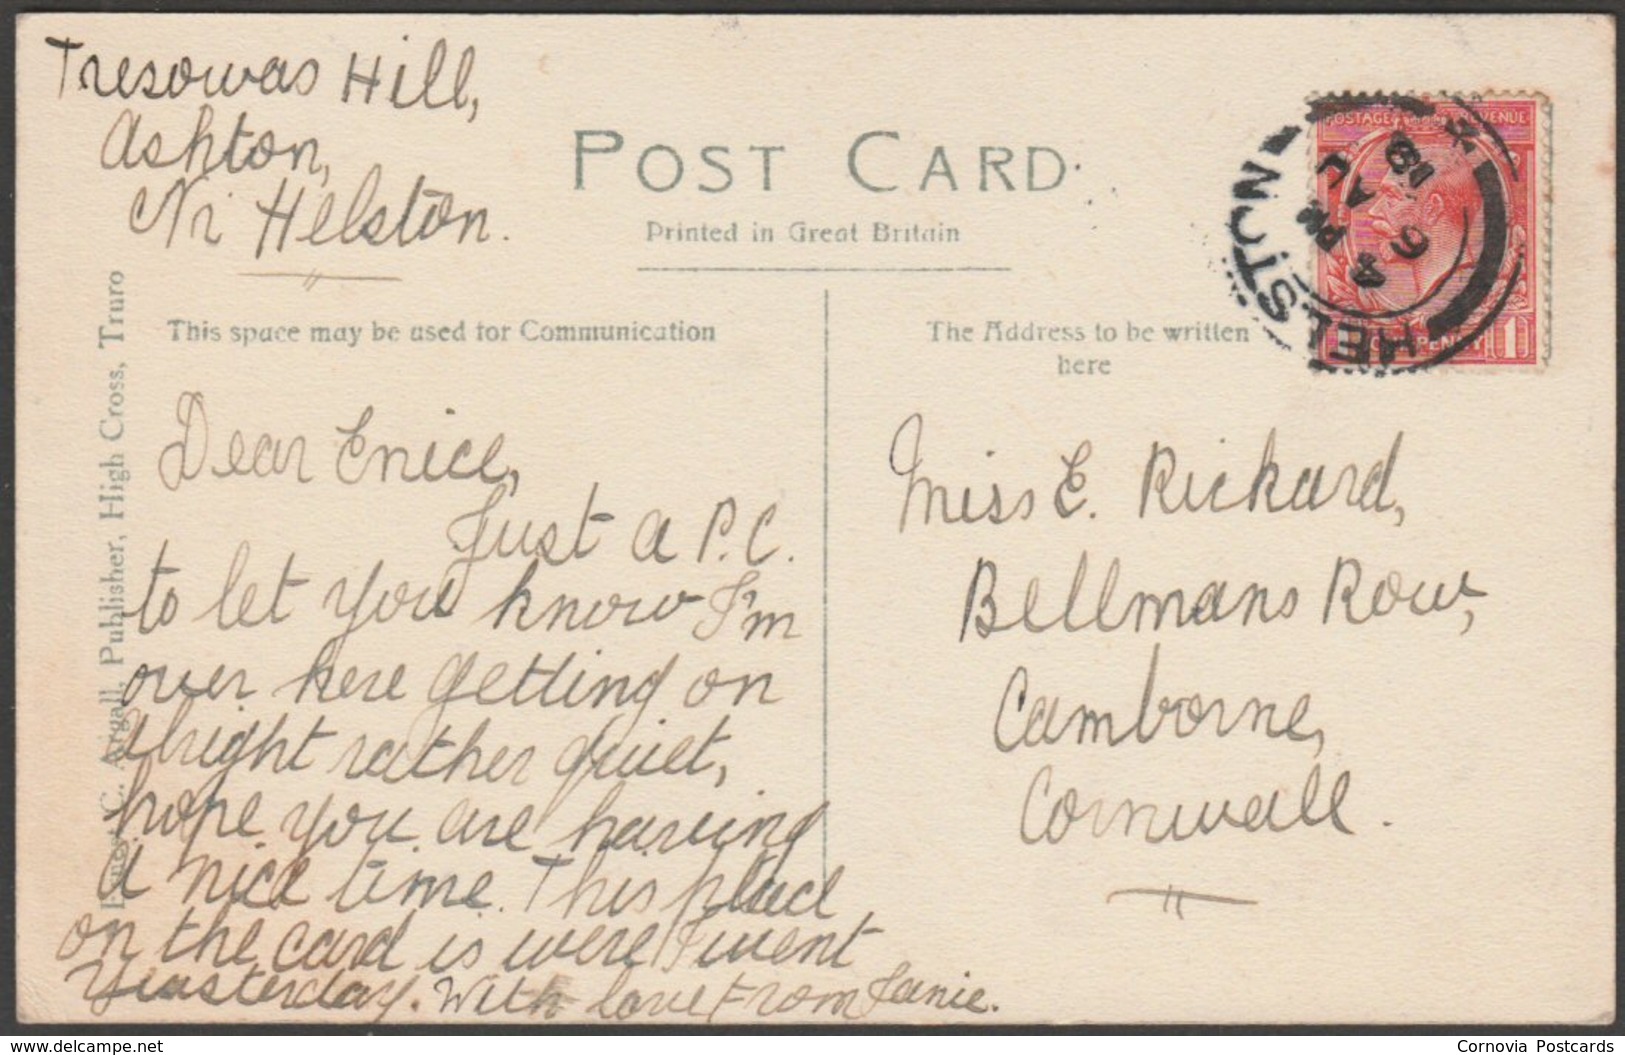 Tresowas Hill,
Ashton,
Nr Helston.
POST CARD
Printed in Great Britain
This space may be used for Communication
The Address to be written
here
POSTAGE REVENUE
1 ONE PENNY 1
HELSTON
4 PM
6 AU
18
Ernest C. Argall, Publisher, High Cross, Truro
Dear Enice,
Just a P.C.
to let you know I'm
over here getting on
alright rather quiet,
hope you are having
a nice time. This place
on the card is were I went
Yeasterday. With love From Janie.
Miss E. Rickard,
Bellmans Row,
Camborne,
Cornwall.
delcampe.net
Cornovia Postcards